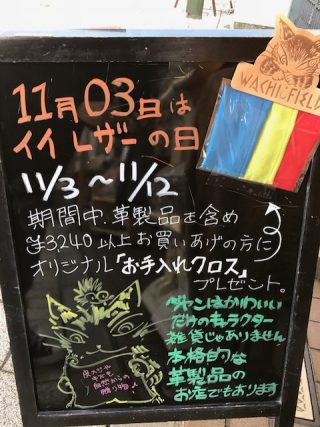 WACHIFIELD
11月03日は
イイ レザーの日
11/3 〜 11/12
期間中、革製品を含め
¥3240以上お買いあげの方に
オリジナル「お手入れクロス」
プレゼント。
ダヤンはかわいい
だけのキャラクター
雑貨じゃありません
本格的な
革製品の
お店でもあります
自然からの
贈り物♪